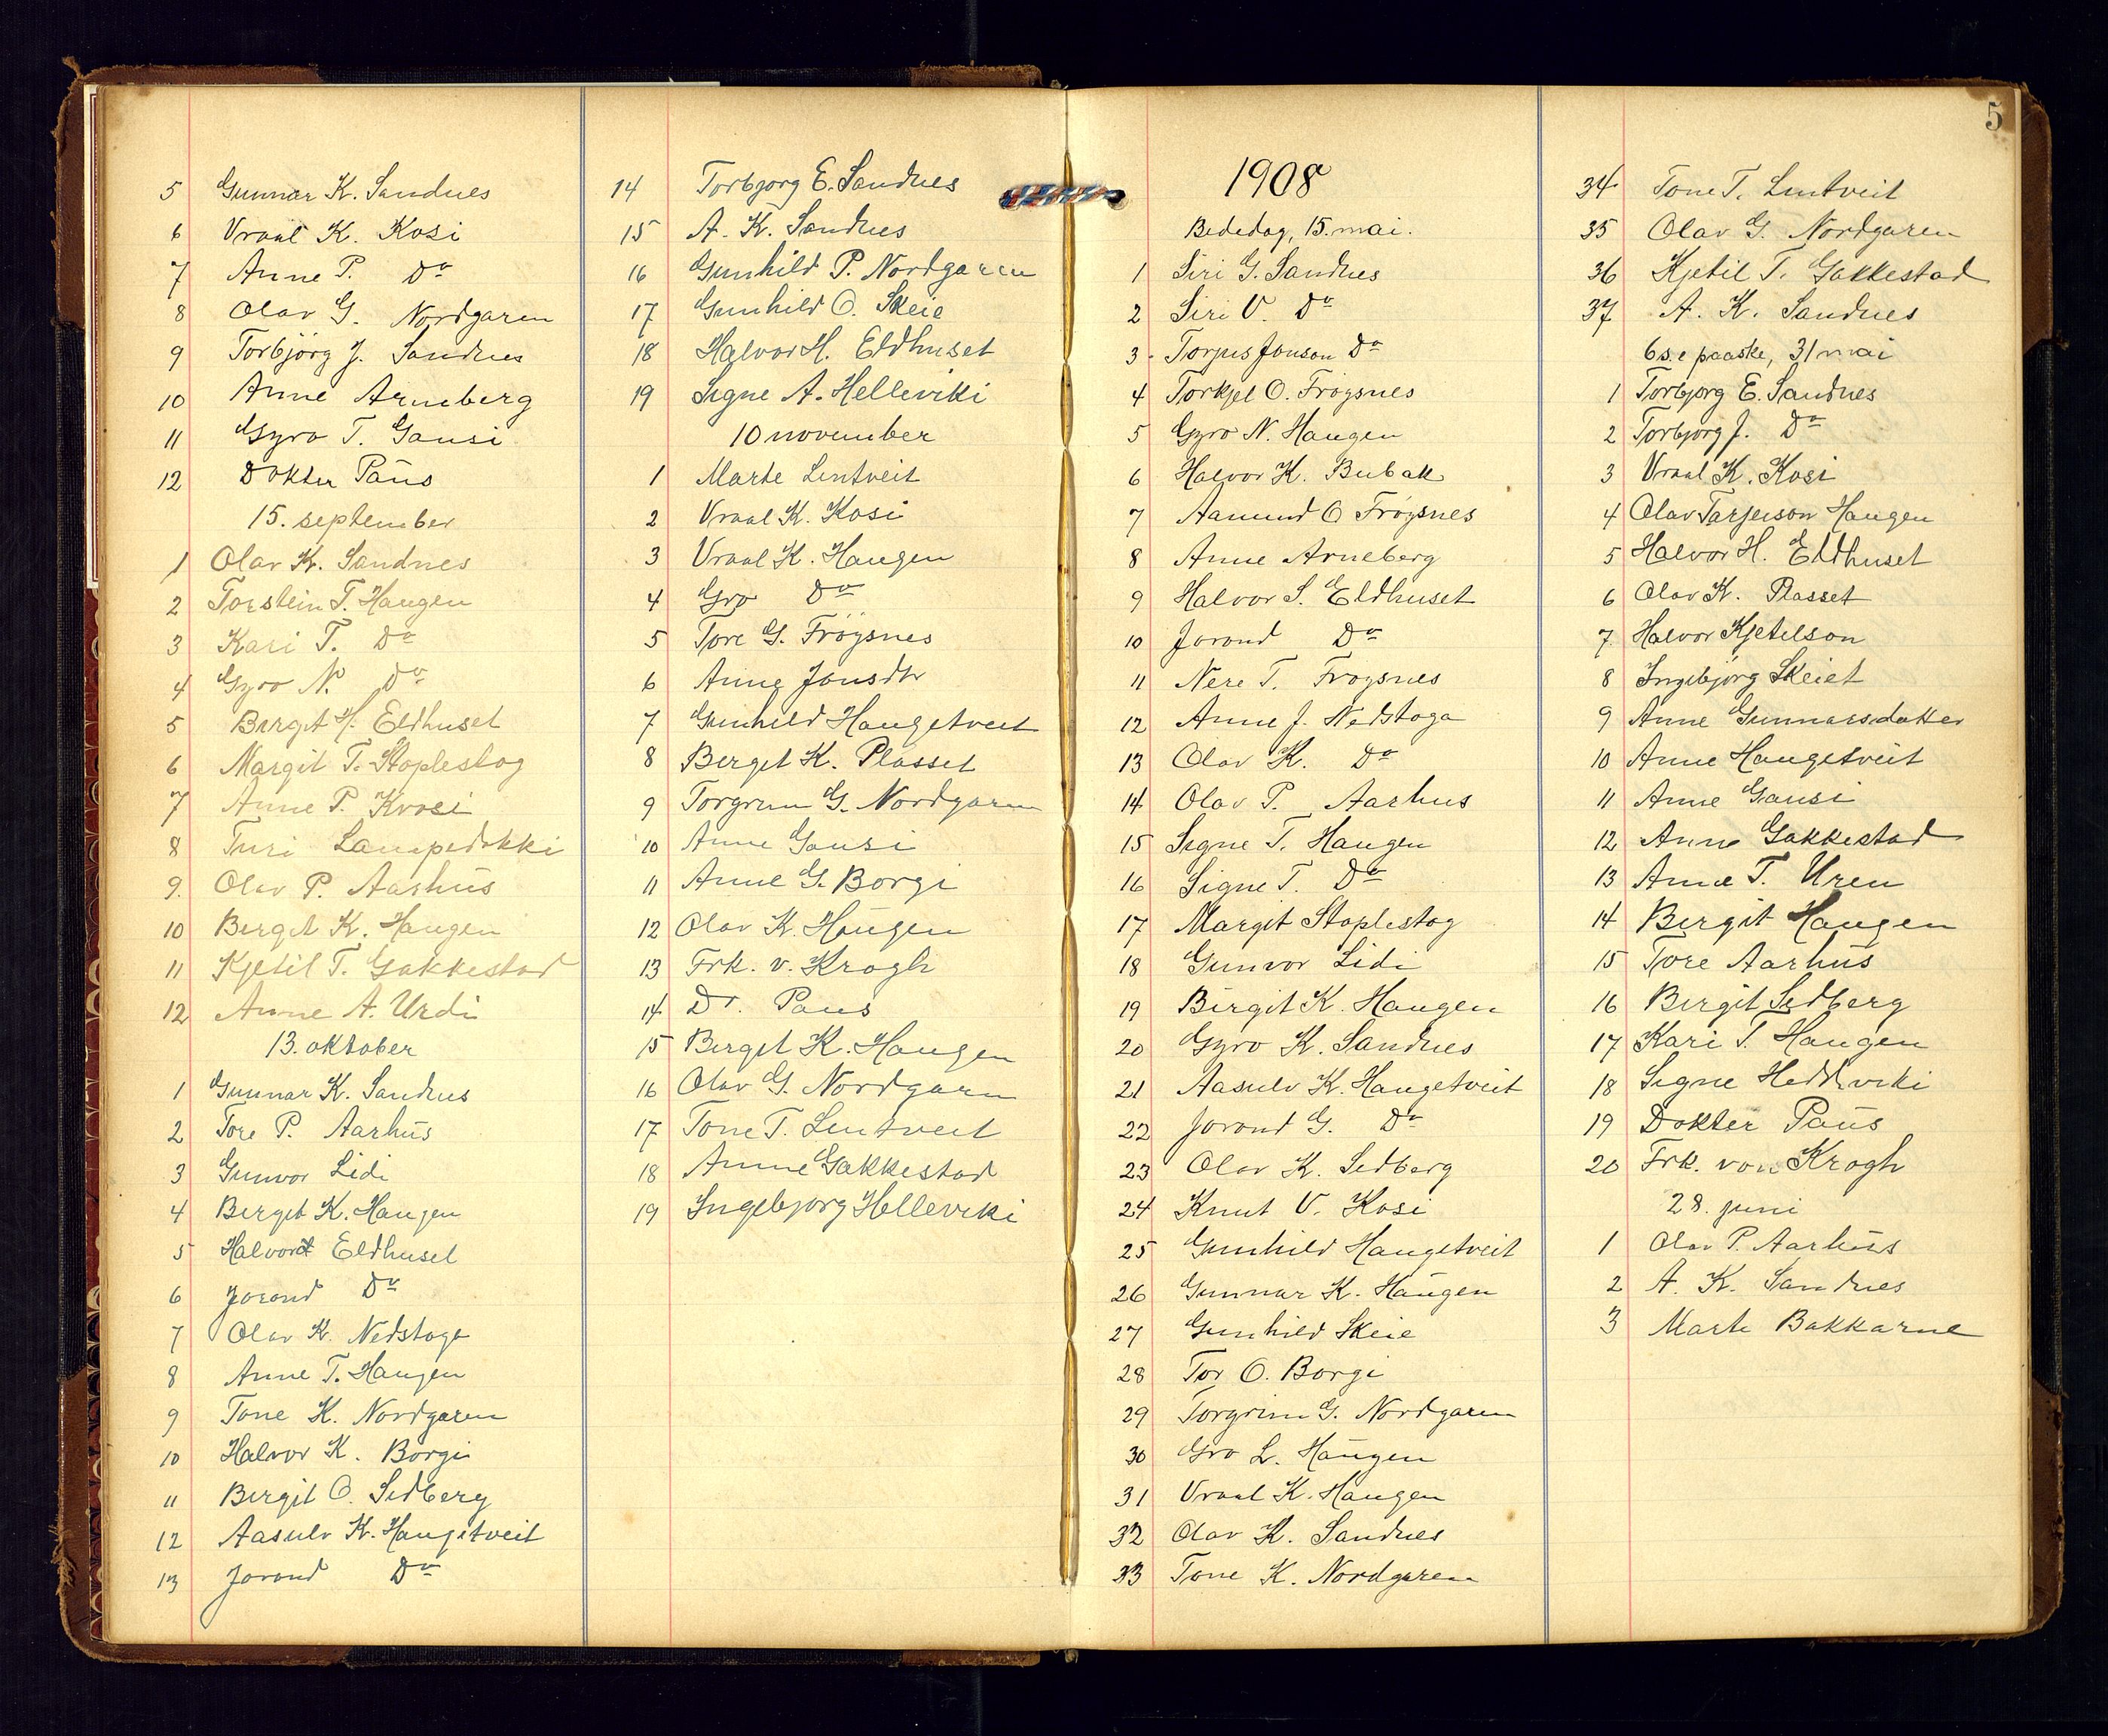 5 Gunnar K. Sandnes
6 Vraal K. Kosi
7 Anne P. Do
8 Olav G. Nordgaren
9 Torbjörg J. Sandnes
10 Anne Arneberg
11 Gyro T. Gausi
12 Dokter Paus
15. september
1 Olav K. Sandnes
2 Torstein T. Haugen
3 Kari T. Do
4 Gyro N. Do
5 Bergit H. Eldhuset
6 Margit T. Staplestog
7 Anne P. Kvosi
8 Turi Lampedokki
9. Olav P. Aarhus
10 Bergit K. Haugen
11 Kjetil T. Gakkestad
12 Anne A. Urdi
13. oktober
1 Gunnar K. Sandnes
2 Tore P. Aarhus
3 Gunvor Lidi
4 Bergit K. Haugen
5 Halvor Eldhuset
6 Jorond Do
7 Olav K. Nedstoga
8 Anne T. Haugen
9 Tone K. Nordgaren
10 Halvor K. Borgi
11 Bergit O. Sedberg
12 Aasulv K. Haugetveit
13 Jorond Do
14 Torbjorg E. Sandnes
15 A. K. Sandnes
16 Gunhild P. Nordgaren
17 Gunhild O. Skeie
18 Halvor H. Eldhuset
19 Signe A. Helleviki
10 november
1 Marte Lentveit
2 Vraal K. Kosi
3 Vraal K. Haugen
4 Gro Do
5 Tore G. Fröysnes
6 Anne Jonsdtr
7 Gunhild Haugetveit
8 Berget K. Plasset
9 Torgrim G. Nordgaren
10 Anne Gausi
11 Anne G. Borgi
12 Olav K. Haugen
13 Frk. v. Krogh
14 Dr. Paus
15 Berget K. Haugen
16 Olav G. Nordgarn
17 Tone T. Lentveit
18 Anne Gakkestad
19 Ingebjorg Helleviki
5
1908
Bededag, 15. mai.
1 Siri G. Sandnes
2 Siri V. Do
3 Torjus Jonson Do
4 Torkjel O. Fröysnes
5 Gyro N. Haugen
6 Halvor K. Bubak
7 Aamund O Fröysnes
8 Anne Arneberg
9 Halvor S. Eldhuset
10 Jorond Do
11 Nere T. Froysnes
12 Anne J. Nedstoga
13 Olav K. Do
14 Olav P. Aarhus
15 Signe T. Haugen
16 Signe T. Do
17 Margit Staplestog
18 Gunvor Lidi
19 Birgit K. Haugen
20 Gyro K. Sandnes
21 Aasulv K. Haugetveit
22 Jorond G. Do
23 Olav K. Sedberg
24 Knut V. Kosi
25 Gunhild Haugetveit
26 Gunnar K. Haugen
27 Gunhild Skeie
28 Tor O. Borgi
29 Torgrim G. Nordgaren
30 Gro L. Haugen
31 Vraal K. Haugen
32 Olav K. Sandnes
33 Tone K. Nordgaren
34 Tone T. Lentveit
35 Olav G. Nordgaren
36 Kjetil T. Gakkestad
37 A. K. Sandnes
6 s. e paaske, 31 mai
1 Torbjorg E. Sandnes
2 Torbjorg J. Do
3 Vraal K. Kosi
4 Olav Tarjeison Haugen
5 Halvor H. Eldhuset
6 Olav K. Plasset
7. Halvor Kjetelson
8 Ingebjørg Skeiet
9 Anne Gunnarsdatter
10 Anne Haugetveit
11 Anne Gausi
12 Anne Gakkestad
13 Anne T. Uren
14 Bergit Haugen
15 Tore Aarhus
16 Bergit Sedberg
17 Kari T. Haugen
18 Signe Hedlviki
19 Dokter Paus
20 Frk. von Krogh
28. juni
1 Olav P. Aarhus
2 A. K. Sandnes
3 Marte Bakkarne